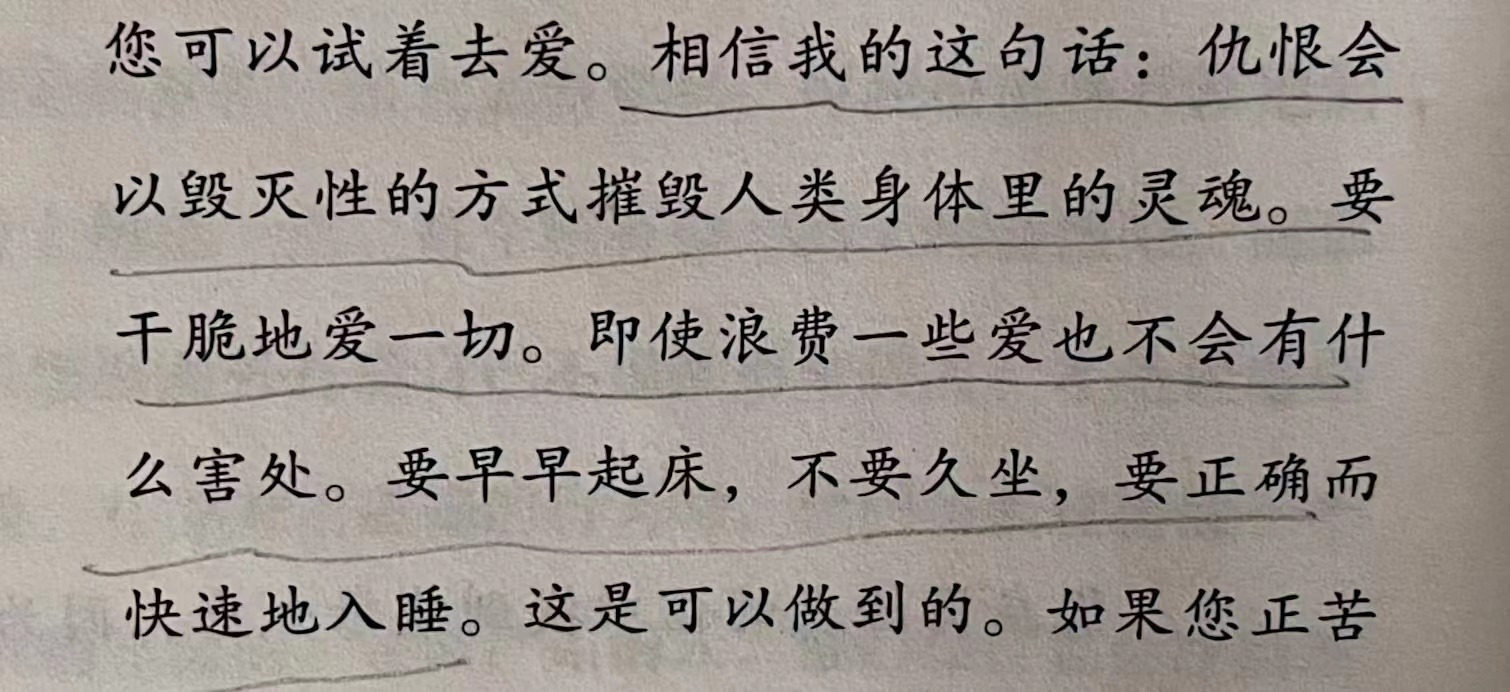 您可以试着去爱。相信我的这句话：仇恨会
以毁灭性的方式摧毁人类身体里的灵魂。要
干脆地爱一切。即使浪费一些爱也不会有什
么害处。要早早起床，不要久坐，要正确而
快速地入睡。这是可以做到的。如果您正苦